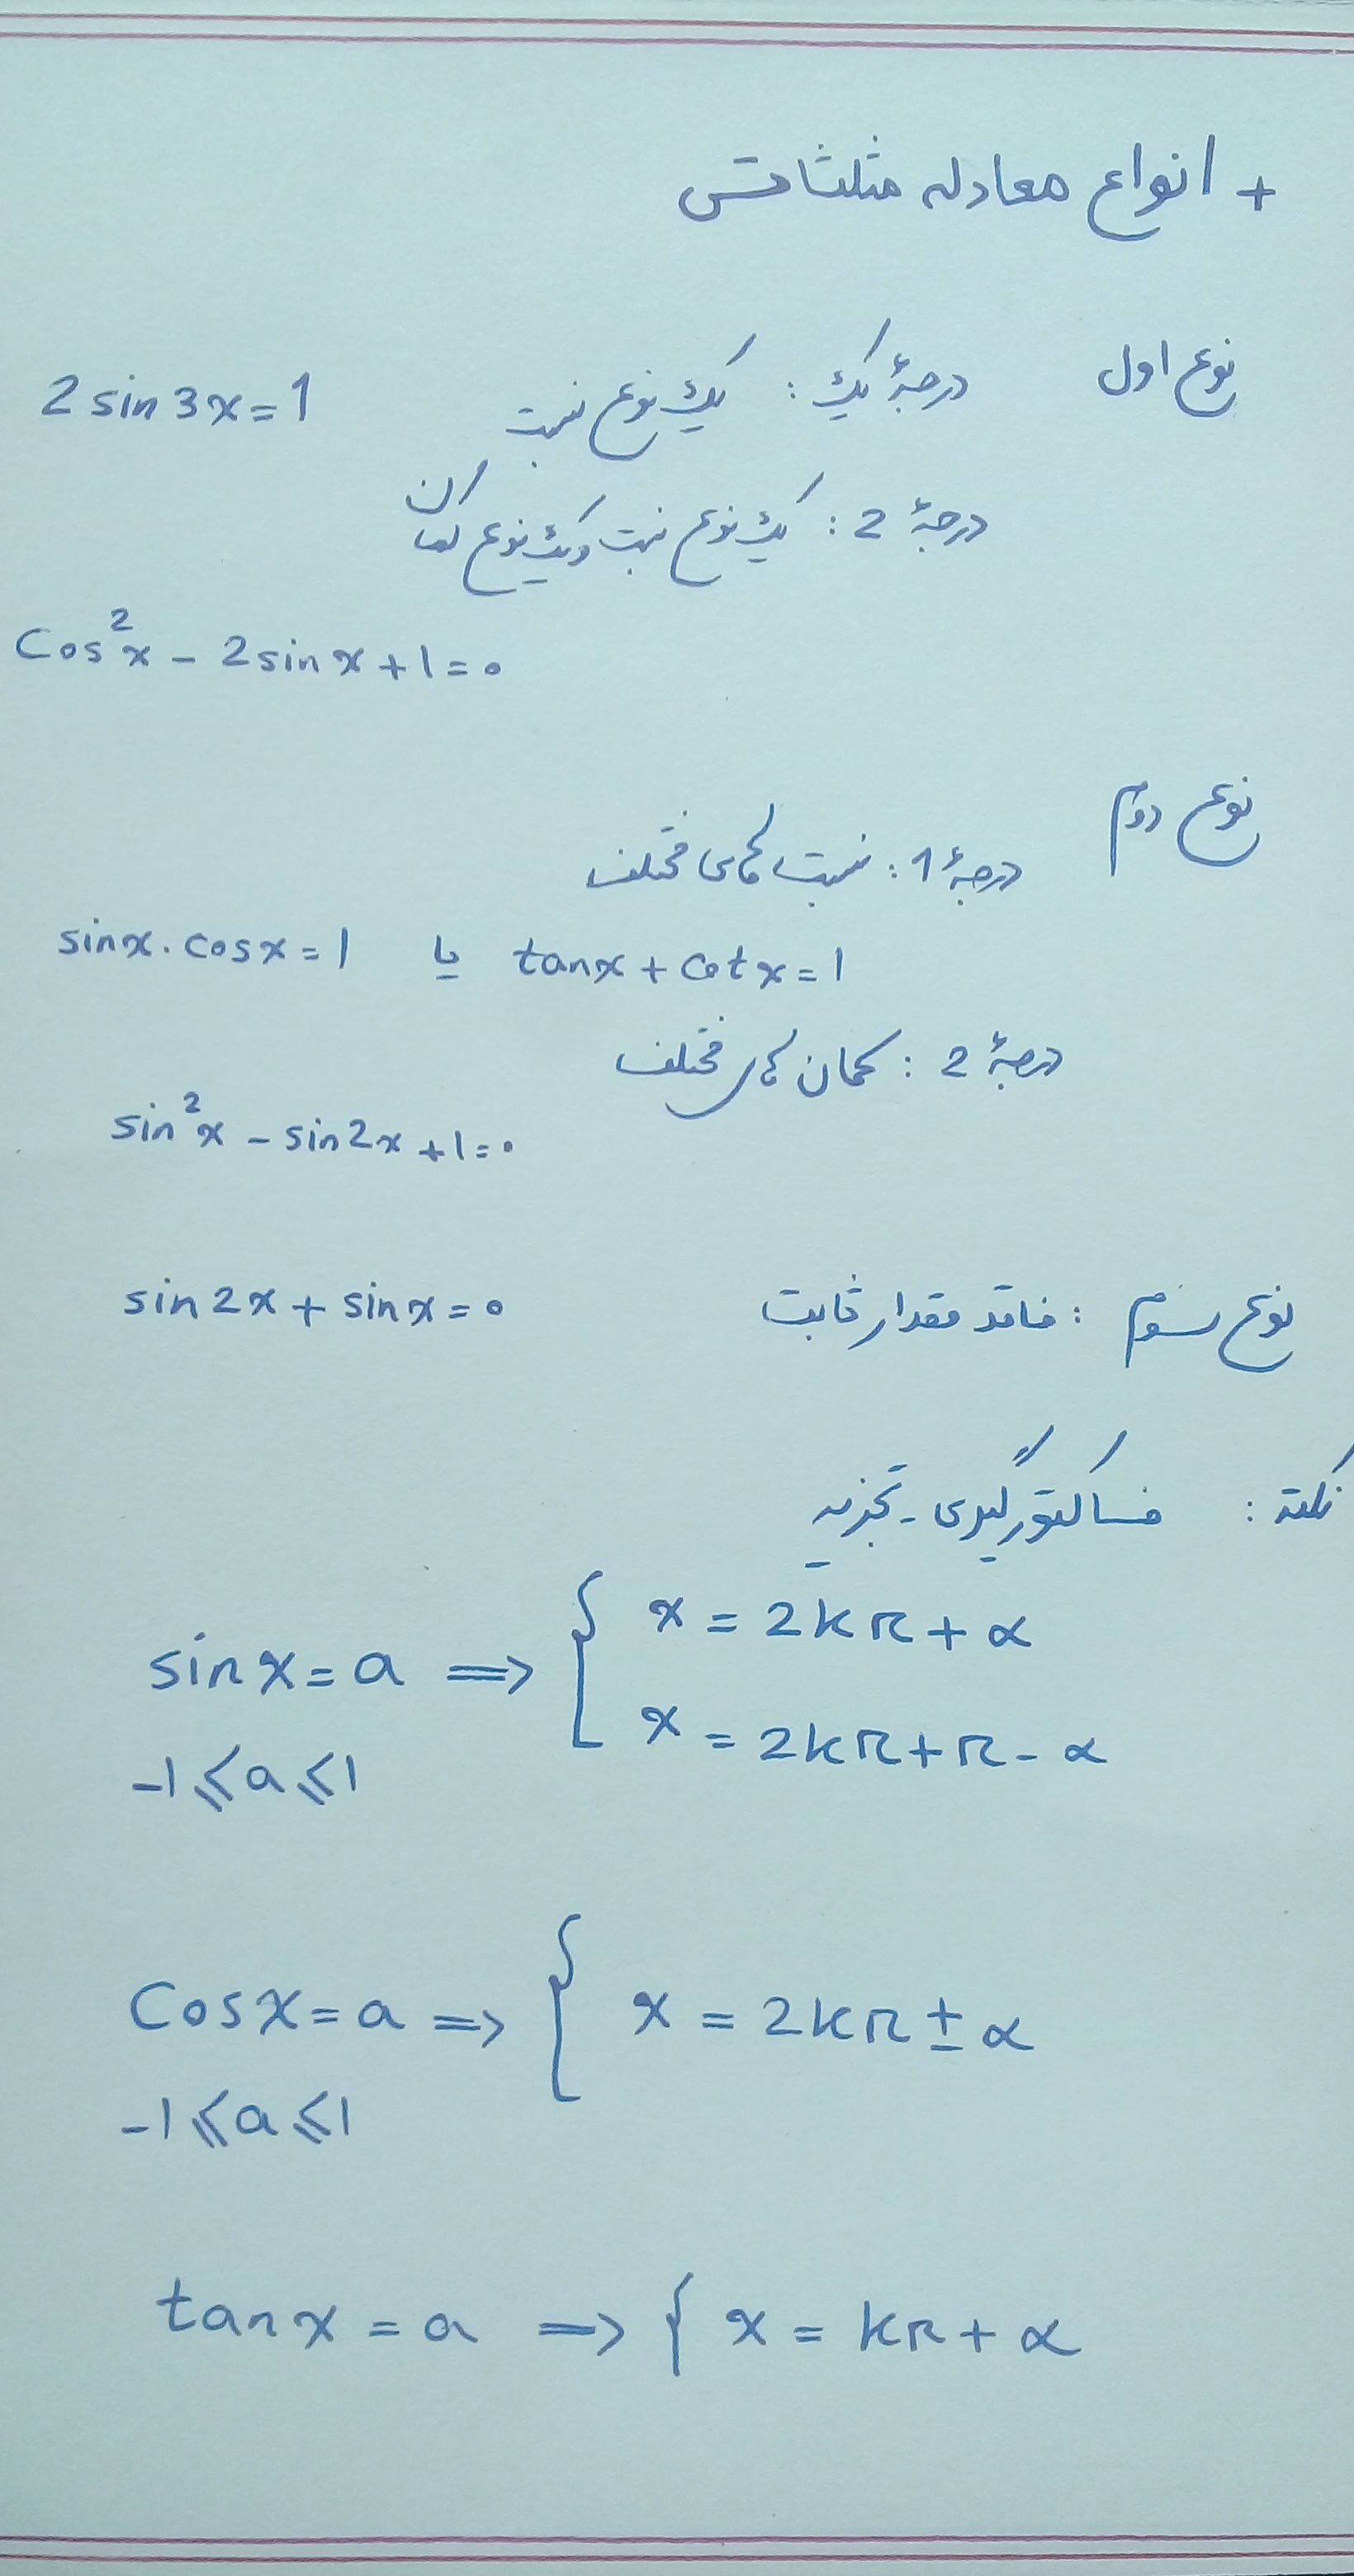 + انواع معادله مثلثاتی
نوع اول درجهٔ یک : یک نوع نسبت 2 sin 3x = 1
درجهٔ 2 : یک نوع نسبت و یک نوع کمان
Cos²x - 2 sin x + 1 = 0
نوع دوم
درجهٔ 1 : نسبت های مختلف
sin x . cos x = 1 یا tan x + cot x = 1
درجهٔ 2 : کمان های مختلف
sin²x - sin 2x + 1 = 0
نوع سوم : فاقد مقدار ثابت sin 2x + sin x = 0
نکته : فاکتورگیری - تجزیه
sin x = a => { x = 2kπ + α
x = 2kπ + π - α
-1 ⩽ a ⩽ 1
Cos x = a => { x = 2kπ ± α
-1 ⩽ a ⩽ 1
tan x = a => { x = kπ + α